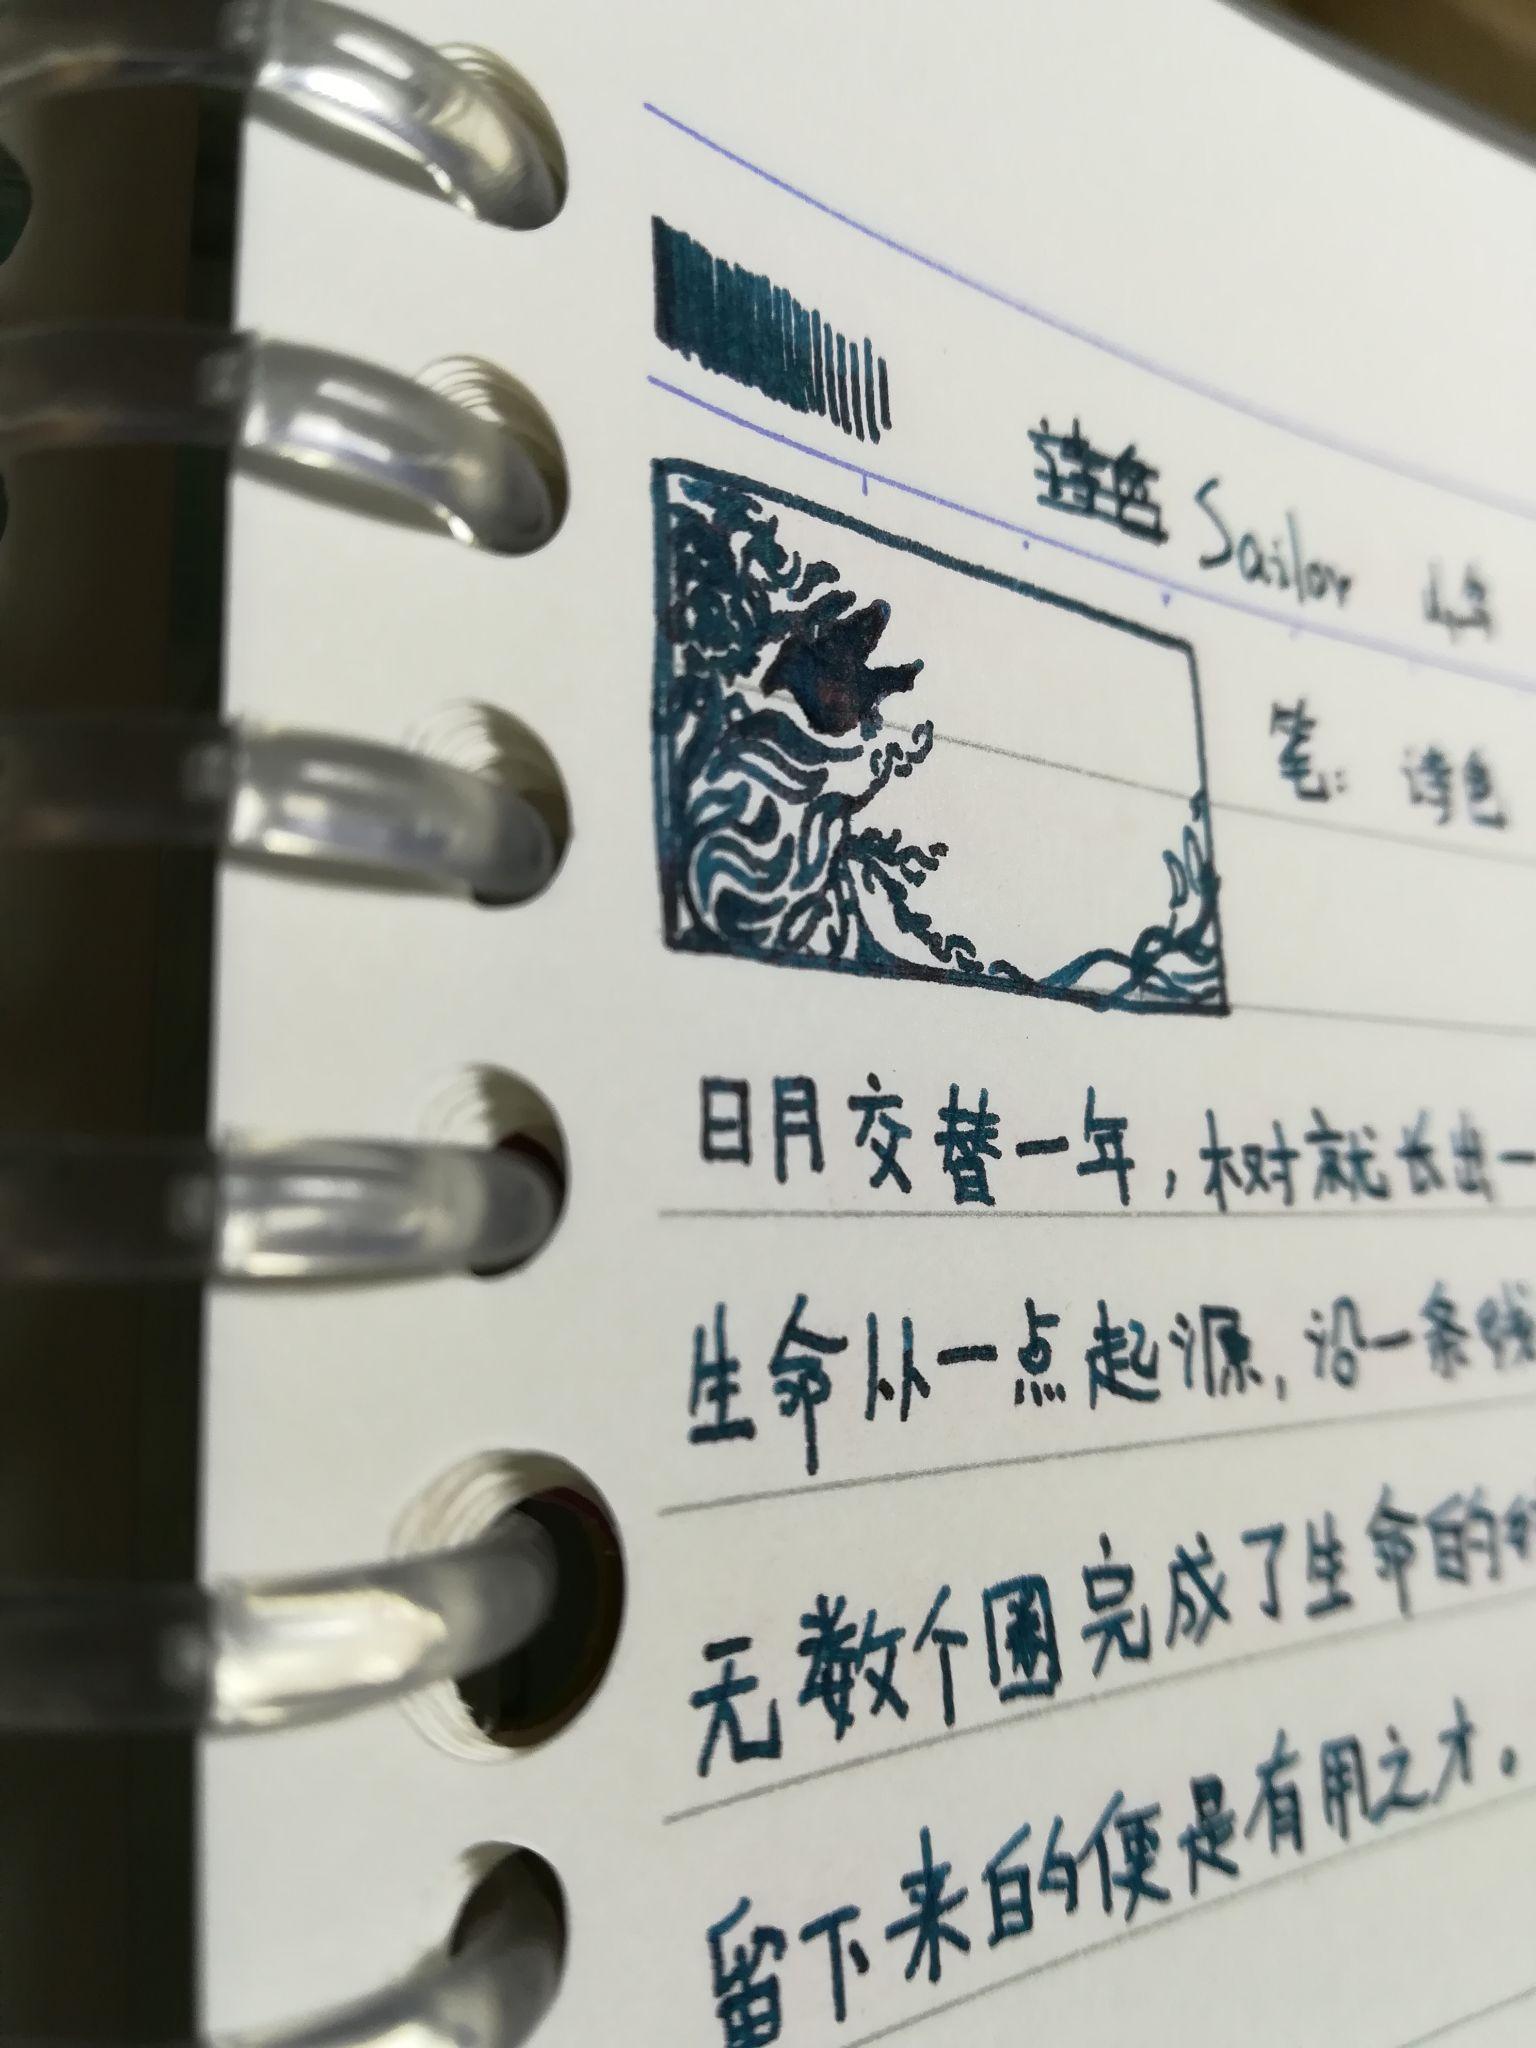 Sailor
笔：诗色
日月交替一年，树就长出一
生命从一点起源，沿一条线
无数个圈完成了生命的
留下来的便是有用之才。